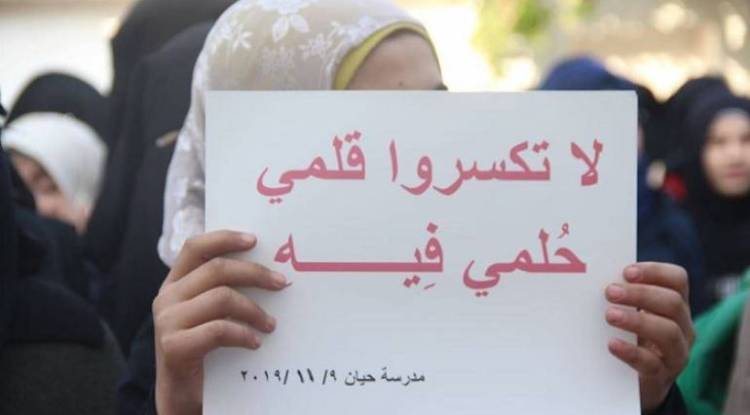 لا تكسروا قلمي
حُلمي فِيـــــــــهِ
مدرسة حيان ٩/ ١١/ ٢٠١٩